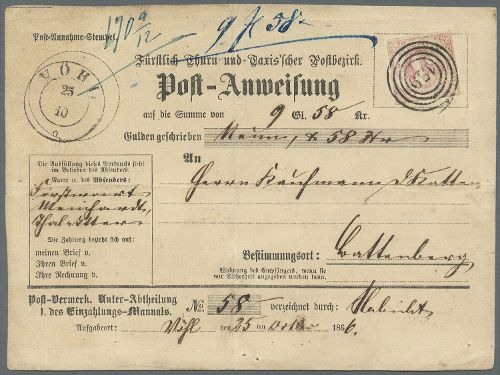 Post-Annahme-Stempel.
9 f 58
Fürstlich Thurn und Taxis'scher Postbezirk.
Post-Anweisung
VÖHL
25
10
auf die Summe von 9 Gl. 58 Kr.
Gulden geschrieben Neun, & 58 Kr
An
Die Ausfüllung dieses Vordrucks steht
im Belieben des Absenders.
Name u. des Absenders:
Thalitter
Herrn Kaufmann
Die Zahlung bezieht sich auf:
meinen Brief v.
Ihren Brief v.
Ihre Rechnung v.
Bestimmungsort: Battenberg
Wohnung des Empfängers, wenn sie
mit Sicherheit angegeben werden kann.
Post-Vermerk. Unter-Abtheilung
I. des Einzahlungs-Mannals.
No 58 verzeichnet durch:
Aufgabeort: Vöhl den 25 ten October 1866.